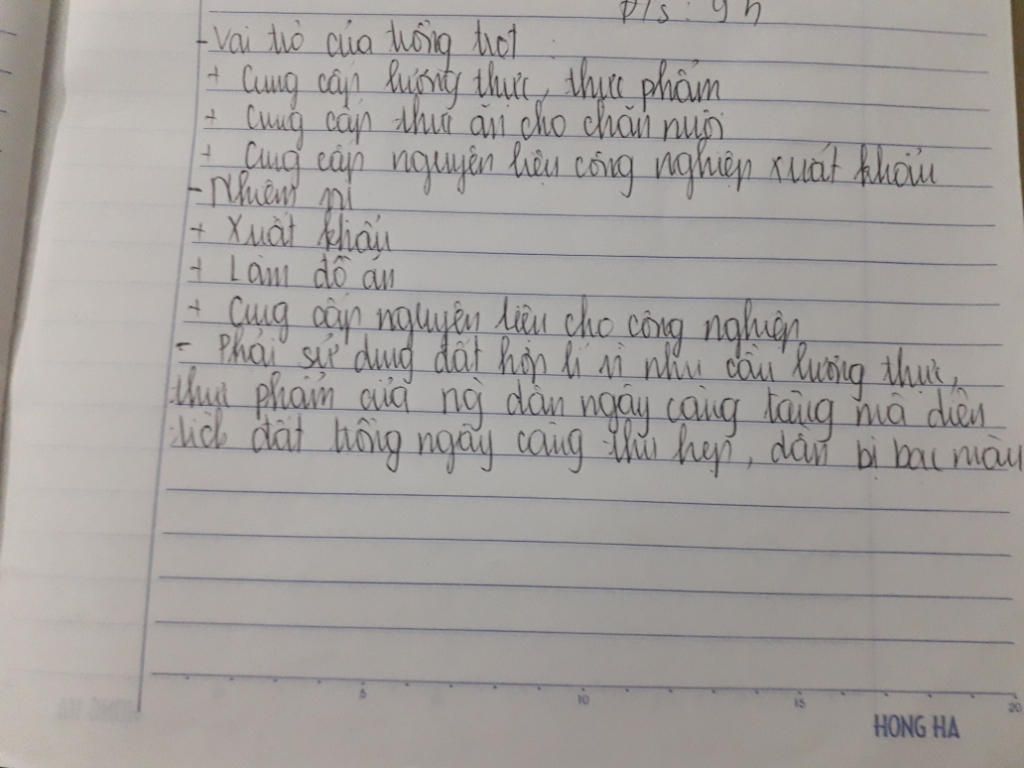 Đ/s: 9h
- Vai trò của trồng trọt
+ Cung cấp lương thực, thực phẩm
+ Cung cấp thức ăn cho chăn nuôi
+ Cung cấp nguyên liệu công nghiệp xuất khẩu
- Nhiệm vụ
+ Xuất khẩu
+ Làm đồ ăn
+ Cung cấp nguyên liệu cho công nghiệp
- Phải sử dụng đất hợp lí vì nhu cầu lương thực,
thực phẩm của ng dân ngày càng tăng mà diện
tích đất trồng ngày càng thu hẹp, dần bị bạc màu
5 10 15 20
HONG HA